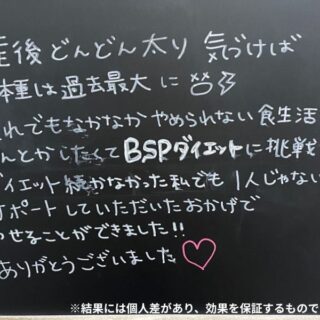 産後どんどん太り 気づけば
体重は過去最大に
それでもなかなかやめられない食生活
なんとかしたくてBSPダイエットに挑戦
ダイエット続かなかった私でも1人じゃない
サポートしていただいたおかげで
やせることができました!!
ありがとうございました♡
※結果には個人差があり、効果を保証するもので